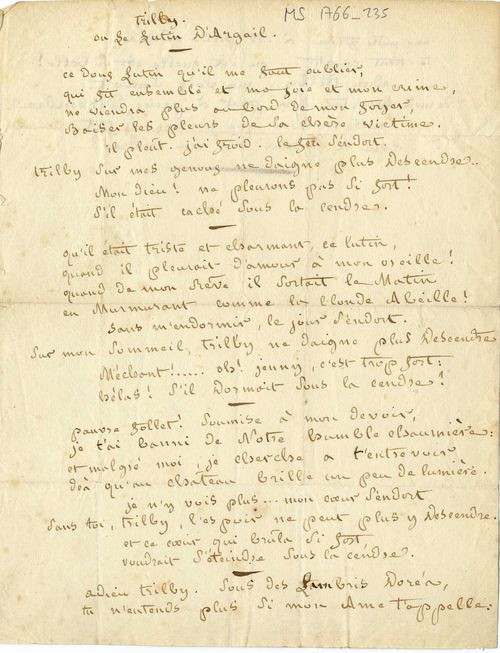 Trilby.
MS 1766_235
ou Le Lutin D'Argail.
ce doux Lutin qu'il me faut oublier,
qui fit ensemble et ma joie et mon crime,
ne viendra plus au bord de mon foyer,
Baiser les pleurs de sa chère victime.
il pleut. j'ai froid. le feu s'endort.
trilby sur mes genoux ne daigne plus Descendre..
Mon dieu! ne pleurons pas si fort!
S'il était caché sous la cendre.
qu'il était triste et charmant, ce lutin,
quand il pleurait d'amour à mon oreille!
quand de mon rêve il sortait le Matin
en Murmurant comme la blonde Abeille!
sans m'endormir, le jour s'endort.
sur mon sommeil, trilby ne daigne plus Descendre
Méchant!..... oh! jenny, c'est trop fort:
hélas! S'il Dormait sous la cendre!
pauvre follet! soumise à mon devoir,
je t'ai banni de Notre humble chaumière:
et malgré moi, je cherche a t'entrevoir
dès qu'au chateau brille un peu de lumière.
je n'y vois plus... mon cœur s'endort
sans toi, trilby, l'espoir ne peut plus y Descendre.
et ce cœur qui brûla si fort
voudrait s'éteindre sous la cendre.
adieu trilby. sous des Lambris Dorés,
tu n'entends plus si mon Ame t'appelle: